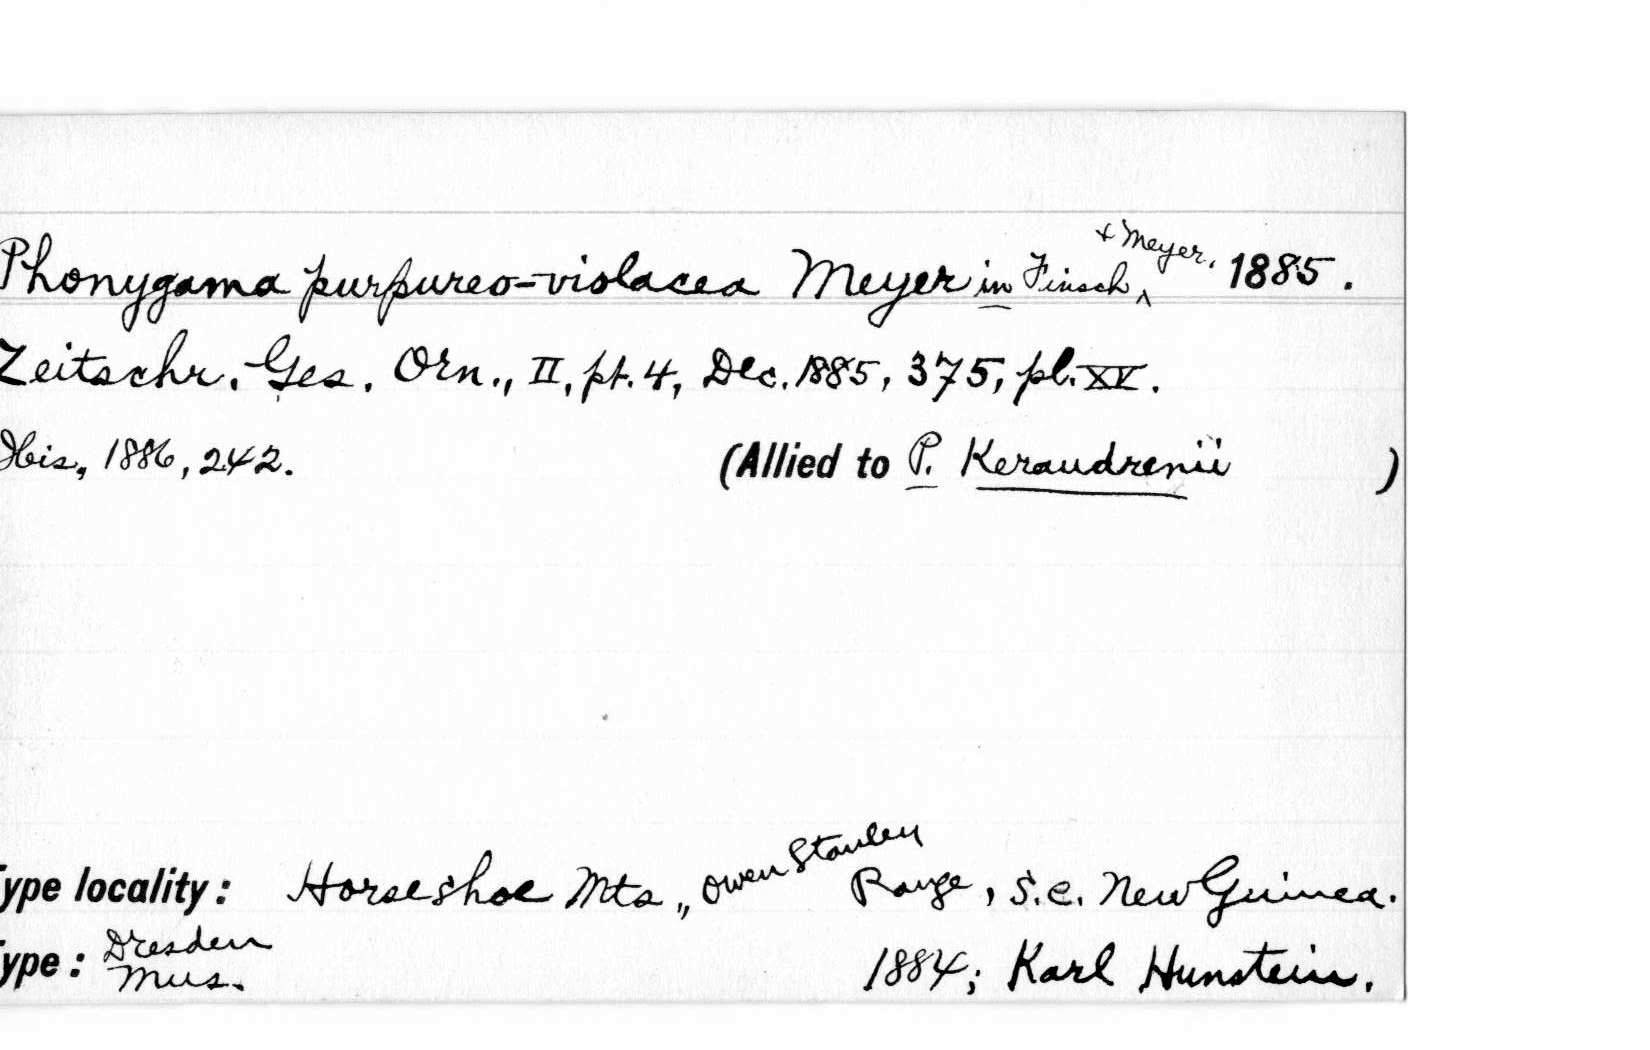 Phonygama purpureo-violacea Meyer in Finsch & Meyer, 1885.
Zeitschr. Ges. Orn., II, pt. 4, Dec. 1885, 375, pl. XV.
Ibis, 1886, 242. (Allied to P. Keraudrenii )
Type locality: Horseshoe Mts., Owen Stanley Range, s.e. New Guinea.
Type: Dresden Mus. 1884; Karl Hunstein.